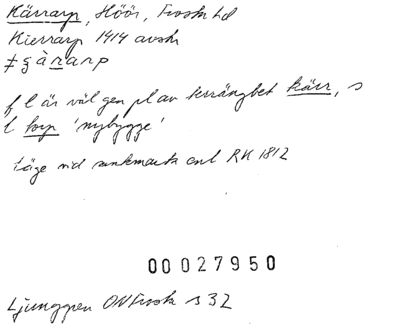 Kärrarp, Höör, Frosta hd
Kierrarp 1414 avskr
ɟgàrarp
f l är väl gen pl av terrängbet kärr, s
l torp 'nybygge'
läge vid sankmark enl RK 1812
00 027950
Ljunggren ON Frosta s 32